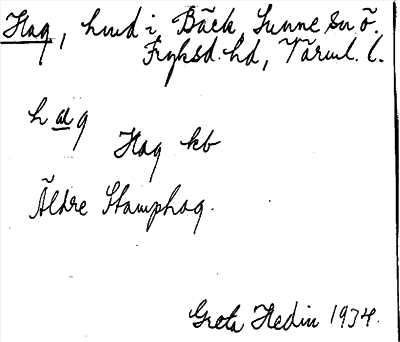 Hag, hmd i Bäck, Sunne sn ö.
Fryksd. hd, Värml. l.
hag
Hag kb
Äldre Stamphag.
Greta Hedin 1934.